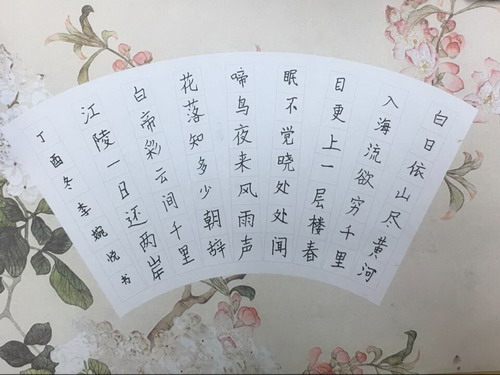 白日依山尽黄河
入海流欲穷千里
目更上一层楼春
眠不觉晓处处闻
啼鸟夜来风雨声
花落知多少朝辞
白帝彩云间千里
江陵一日还两岸
丁酉冬李婉悦书